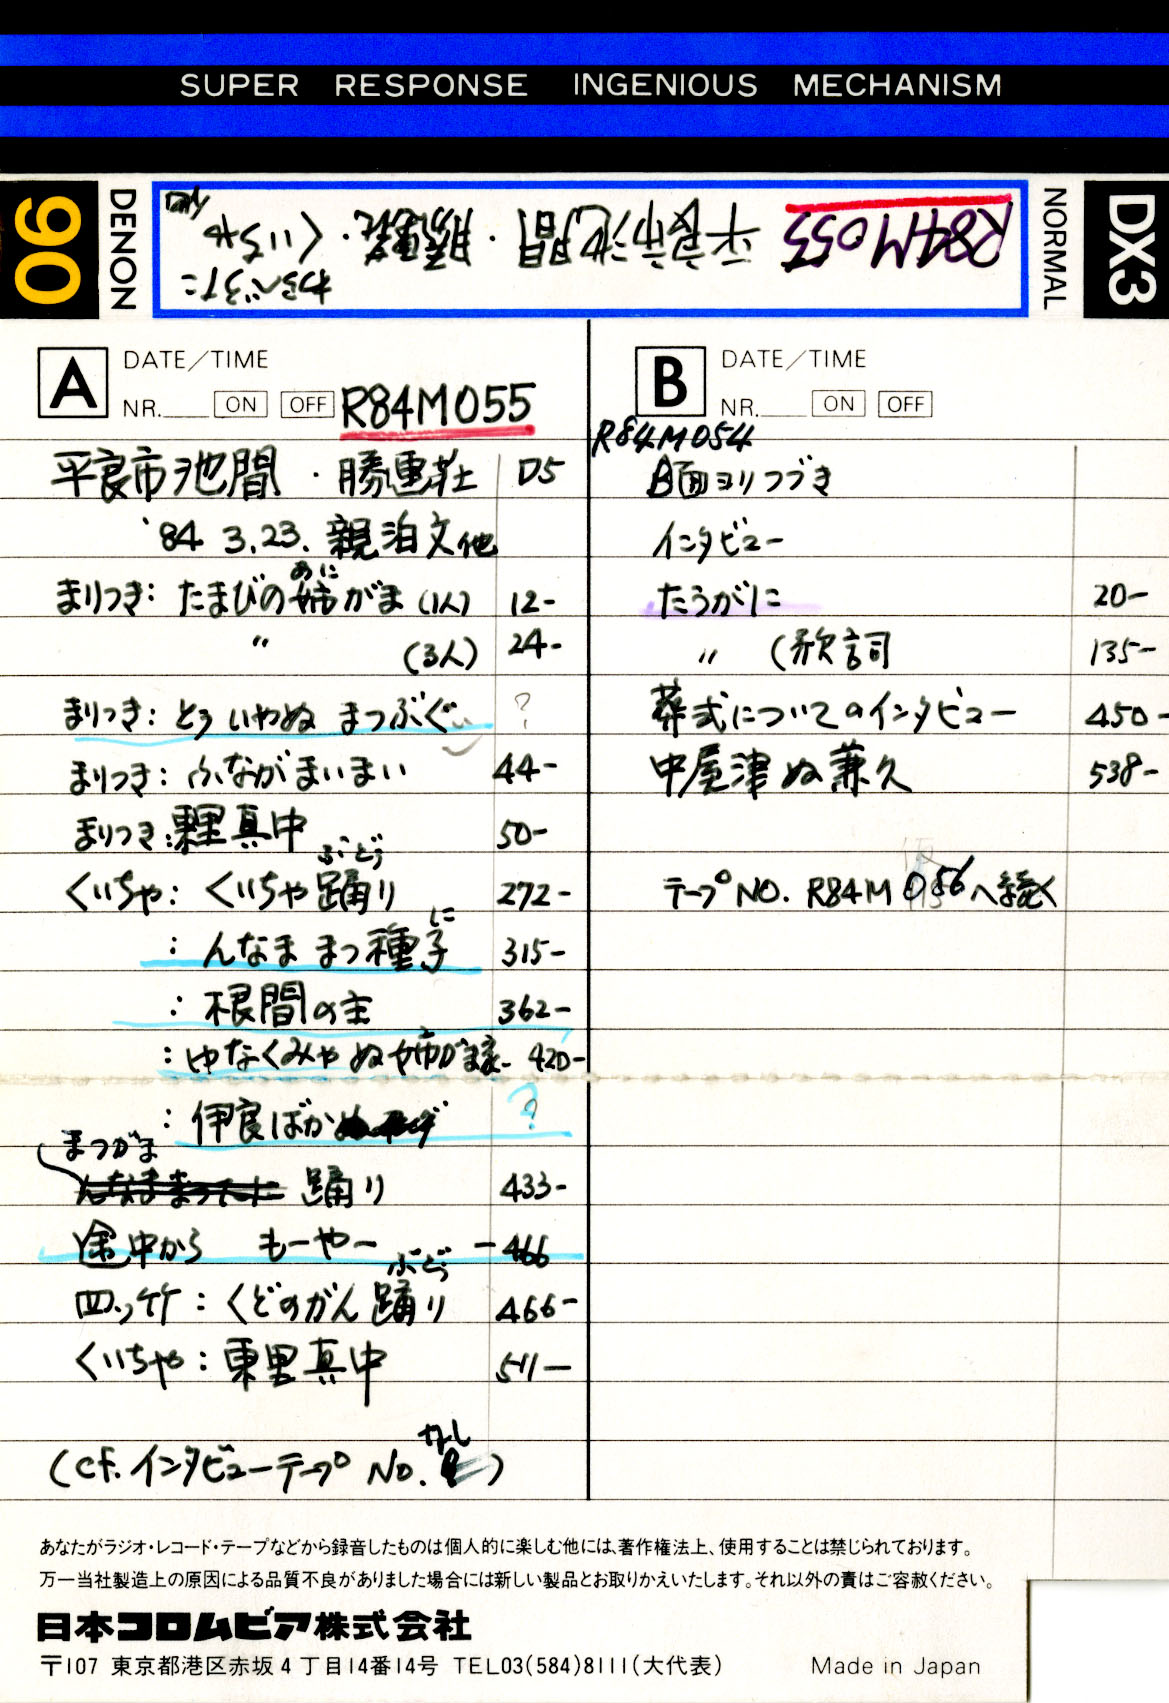 SUPER RESPONSE INGENIOUS MECHANISM
90
DENON
R84M055 平良市池間・勝連荘・くいちゃ
わらべうた
NORMAL
DX3
A
DATE/TIME
NR. ON OFF R84M055
平良市池間・勝連荘 D5
'84 3.23. 親泊文他
まりつき: たまびの姉がま (1人) 12-
あに
〃 (3人) 24-
まりつき: とう いやぬ まつぶぐ ?
まりつき: ふながまいまい 44-
まりつき: 東里真中 50-
くいちゃ: くいちゃ踊り 272-
ぶどう
: んなま まつ種子 315-
に
: 根間の主 362-
: ゆなくみやぬ姉がま 420-
: 伊良ばか ?
まつがま
踊り 433-
途中から もーやー -466
四ッ竹: くどのがん踊り 466-
ぶどう
くいちゃ: 東里真中 511-
(cf. インタビューテープ No. なし)
B
DATE/TIME
NR. ON OFF
R84M054
B面ヨリつづき
インタビュー
たうがに 20-
〃 (歌詞 135-
葬式についてのインタビュー 450-
中屋津ぬ兼久 538-
テープNO. R84M 056へ続く
あなたがラジオ・レコード・テープなどから録音したものは個人的に楽しむ他には、著作権法上、使用することは禁じられております。
万一当社製造上の原因による品質不良がありました場合には新しい製品とお取りかえいたします。それ以外の責はご容赦ください。
日本コロムビア株式会社
〒107 東京都港区赤坂4丁目14番14号 TEL03(584)8111(大代表) Made in Japan